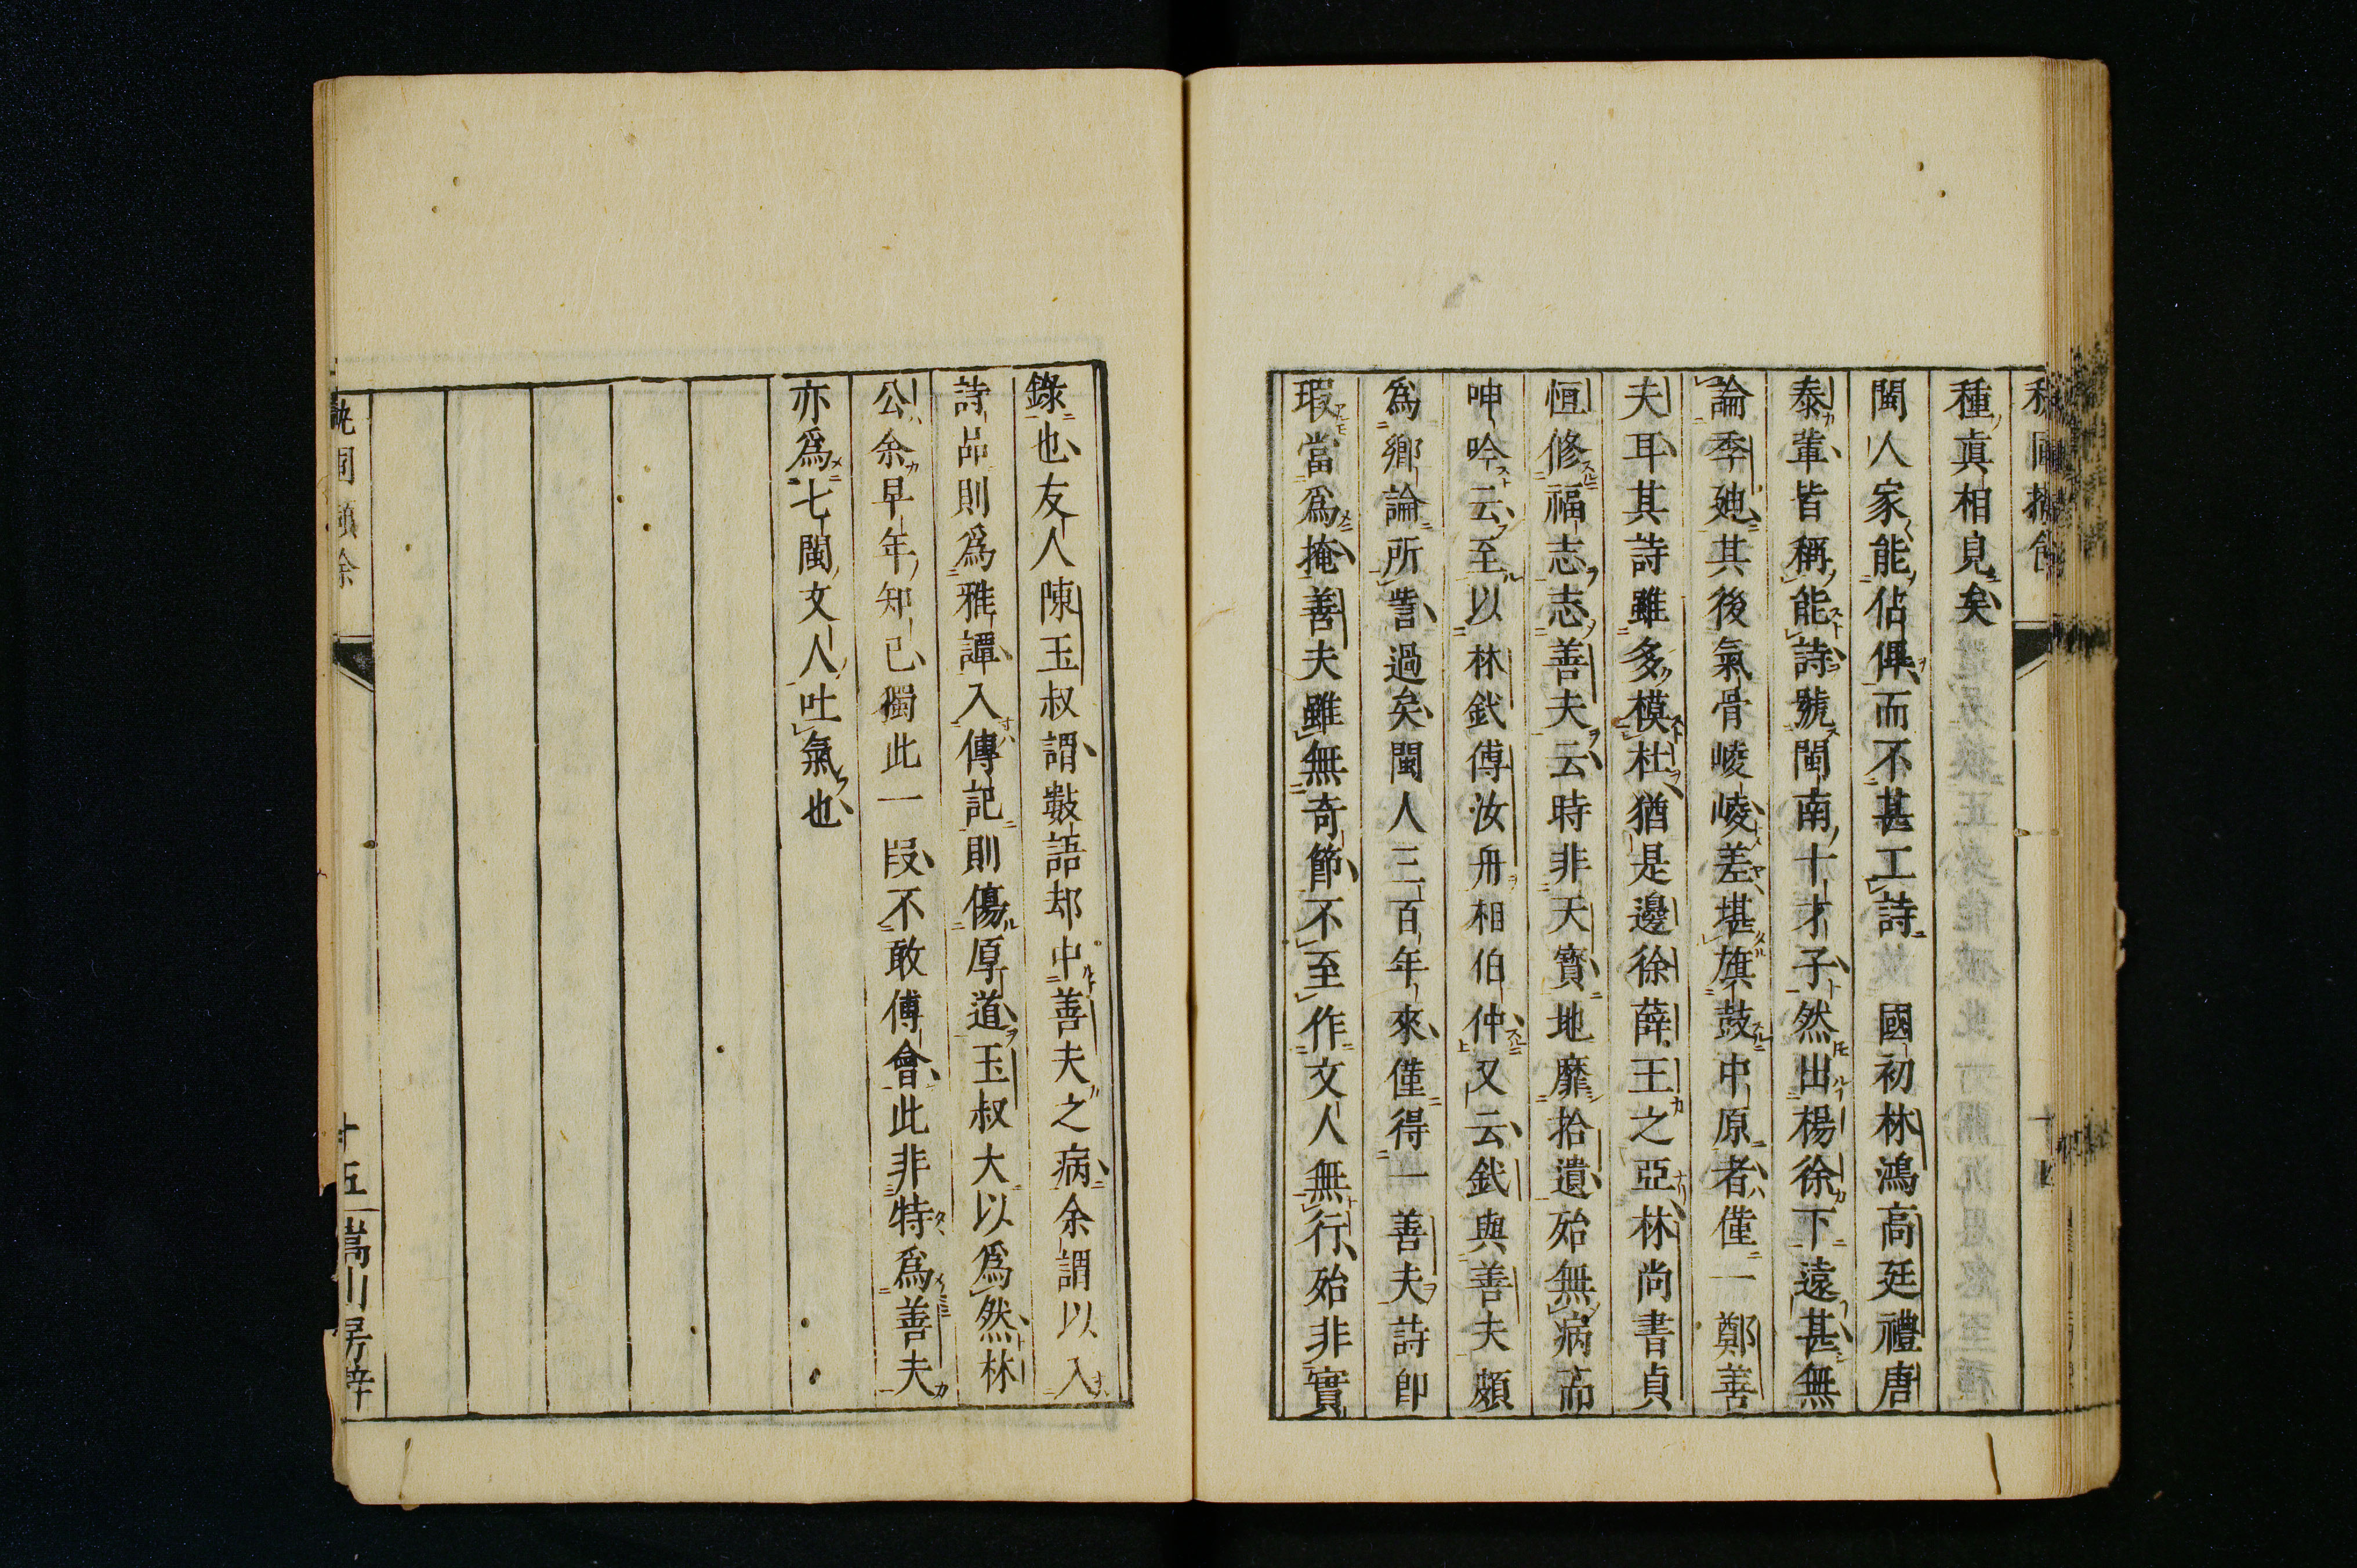 種真相見矣
閩人家能佔俾而不甚工詩　國初林鴻高廷禮唐
泰輩皆稱能詩號閩南十才子然出楊徐下遠甚無
論季廸其後氣骨崚崚差堪旗鼓中原者僅一鄭善
夫耳其詩雖多模杜猶是邊徐薛王之亞林尚書貞
恒修福志志善夫云時非天寳地靡拾遺殆無病而
呻吟云至以林釴傅汝舟相伯仲又云釴與善夫頗
為鄉論所訾過矣閩人三百年來僅得一善夫詩卽
瑕當為掩善夫雖無奇節不至作文人無行殆非實
錄也友人陳玉叔謂數語却中善夫之病余謂以入
詩品則為雅譚入傳記則傷厚道玉叔大以為然林
公余早年知已獨此一段不敢傅會此非特為善夫
亦為七閩文人吐氣也
十五
嵩山房梓